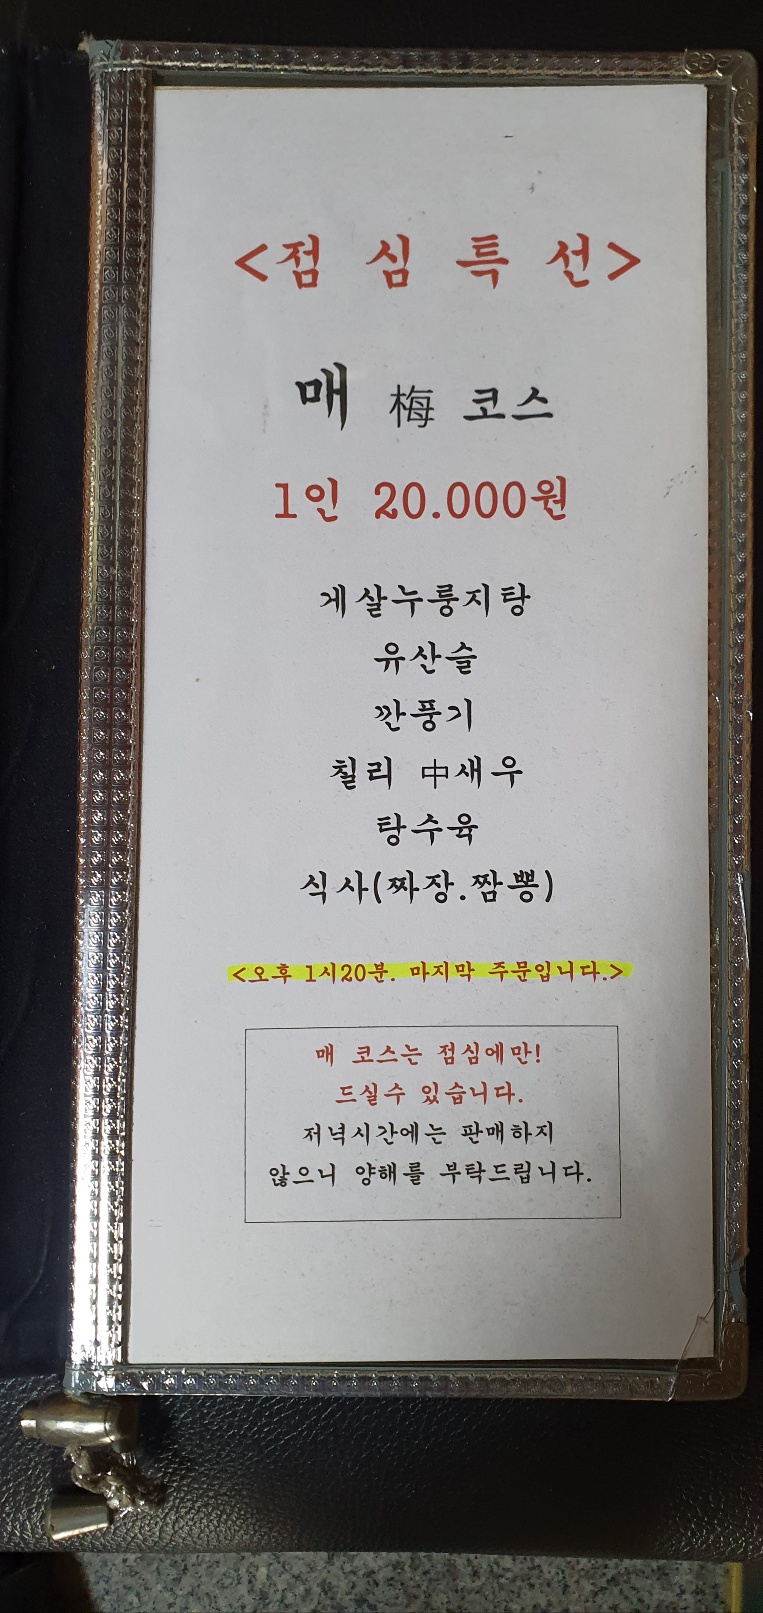 <점 심 특 선>
매 梅 코스
1인 20.000원
게살누룽지탕
유산슬
깐풍기
칠리 中새우
탕수육
식사(짜장.짬뽕)
<오후 1시20분. 마지막 주문입니다.>
매 코스는 점심에만!
드실수 있습니다.
저녁시간에는 판매하지
않으니 양해를 부탁드립니다.